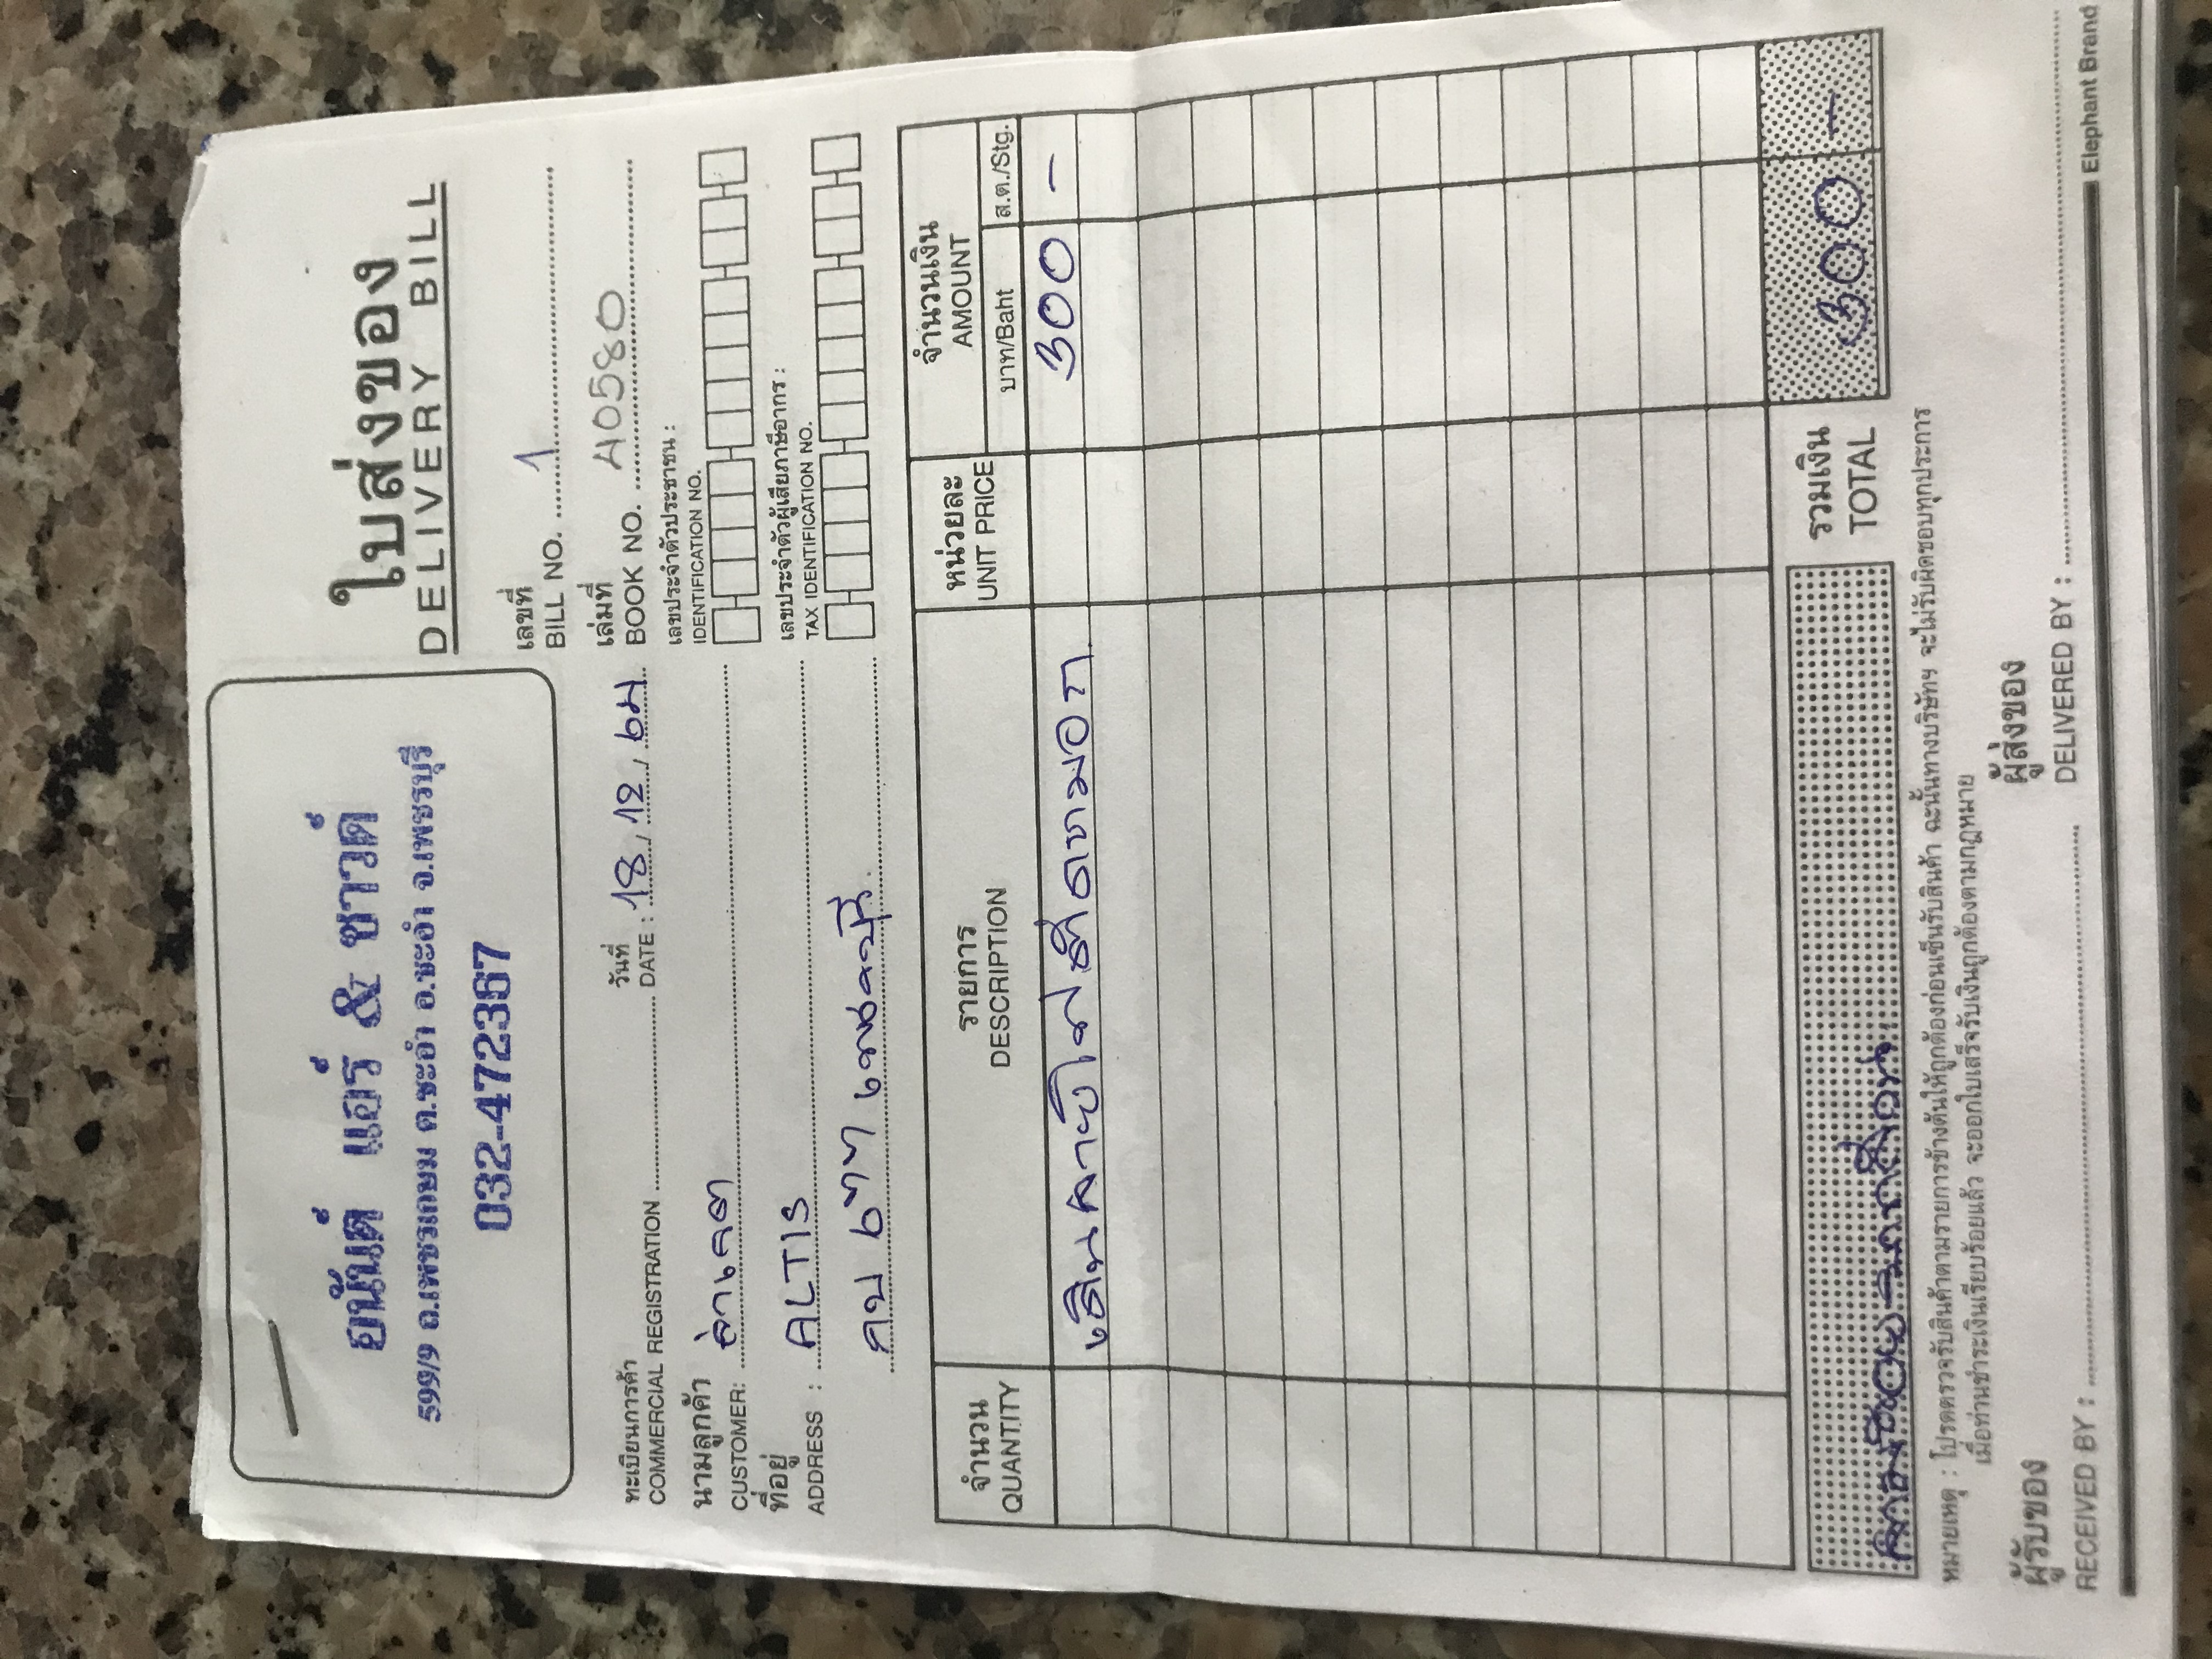 ยนันต์ แอร์ & ซาวด์
599/9 ถ.เพชรเกษม ต.ชะอำ อ.ชะอำ จ.เพชรบุรี
032-472367
ใบส่งของ
DELIVERY BILL
เลขที่
BILL NO. 1
เล่มที่
BOOK NO. A0580
ทะเบียนการค้า
COMMERCIAL REGISTRATION
วันที่
DATE : 18 / 12 /
เลขประจำตัวประชาชน :
IDENTIFICATION NO.
นามลูกค้า
CUSTOMER:
ที่อยู่
ADDRESS : ALTIS
เลขประจำตัวผู้เสียภาษีอากร :
TAX IDENTIFICATION NO.
เพชรบุรี
จำนวน รายการ หน่วยละ จำนวนเงิน
QUANTITY DESCRIPTION UNIT PRICE AMOUNT
บาท/Baht ส.ต./Stg.
300 -
สามร้อยบาทถ้วน รวมเงิน 300 -
TOTAL
หมายเหตุ : โปรดตรวจรับสินค้าตามรายการข้างต้นให้ถูกต้องก่อนเซ็นรับสินค้า ฉะนั้นทางบริษัทฯ จะไม่รับผิดชอบทุกประการ
เมื่อท่านชำระเงินเรียบร้อยแล้ว จะออกใบเสร็จรับเงินถูกต้องตามกฎหมาย
ผู้รับของ ผู้ส่งของ
RECEIVED BY : DELIVERED BY :
Elephant Brand